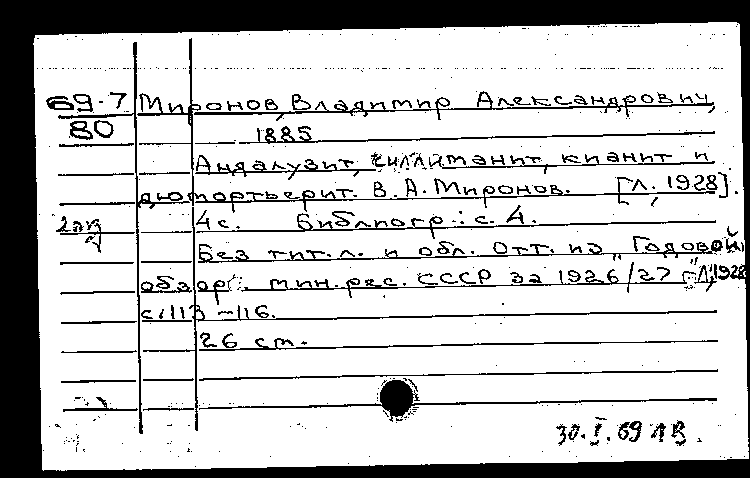 69-7 Миронов, Владимир Александрович,
80 1885
Андалузит, силлиманит, кианит и
дюмортьерит. В. А. Миронов. [Л., 1928].
2 экз 4 с. Библиогр.: с. 4.
Без тит. л. и обл. Отт. из „Годовой
обзор мин. рес. СССР за 1926/27 г." Л., 1928
с. 113-116.
26 cm.
30.I.69 ЛВ.